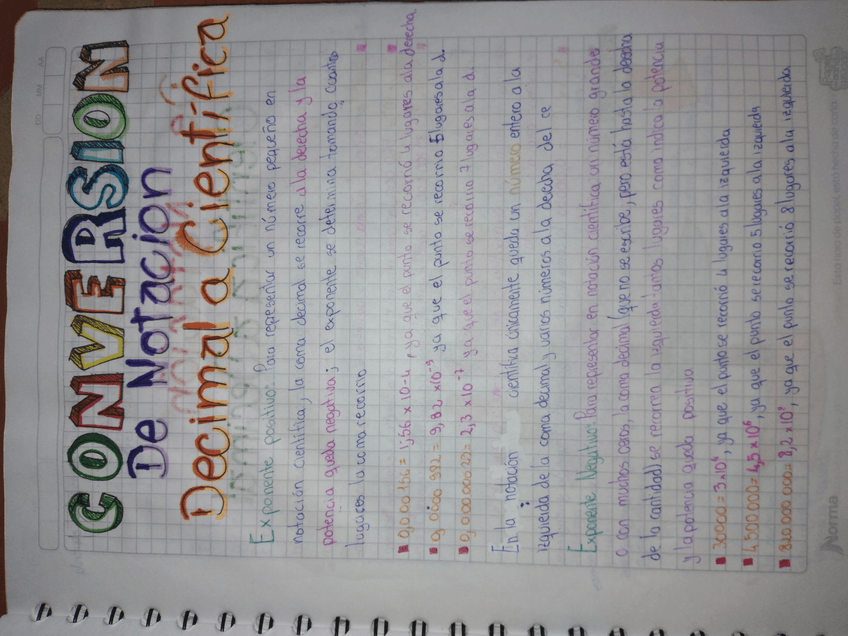 CONVERSION
De Notacion
Decimal a Científica
Exponente positivo: Para representar un número pequeño en
notación científica, la coma decimal se recorre a la derecha y la
potencia queda negativa; el exponente se determina tomando cuantos
lugares la coma recorrio
0,000156 = 1,56 x 10-4, ya que el punto se recorrió 4 lugares a la derecha
= 9,82 x10-5 ya que el punto se recorrio 5 lugares a la d.
= 2,3 x10-7 ya que el punto se recorrio 7 lugares a la d.
En la notación científica únicamente queda un número entero a la
izquierda de la coma decimal y varios números a la decha del ce
Exponente Negativo: Para representar en notación científica un número grande
o con muchos ceros, la coma decimal (que no se escribe, pero está hasta la decha
de la cantidad) se recorren la izquierda unos lugares como indica la potencia
y la potencia queda positiva
30000 = 3x10⁴, ya que el punto se recorrió 4 lugares a la izquierda
4500000 = 4,5x10⁶, ya que el punto se recorrio 5 lugares a la izquierda
820 000 000 = 8,2 x10⁸, ya que el punto se recorrió 8 lugares a la izquierda
Norma